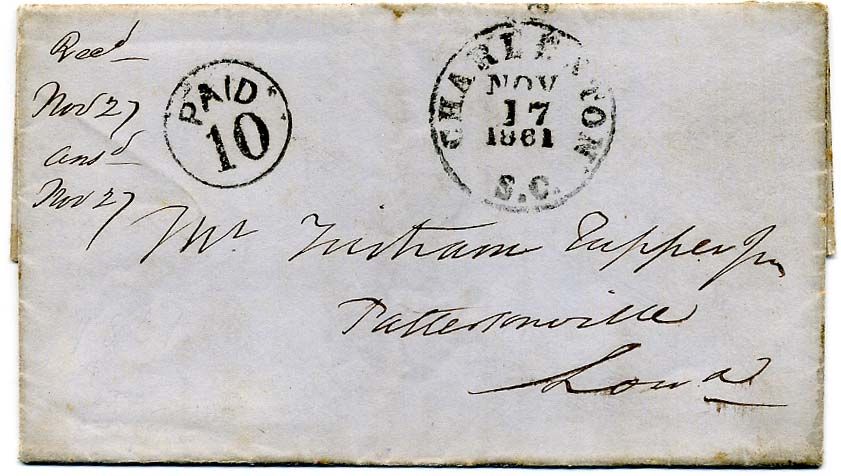 Recd
Nov 27
Ansd
Nov 27
PAID
10
CHARLESTON
NOV
17
1861
S.C.
Mr Tristram Tupper Jr
Pattersonville
Loua